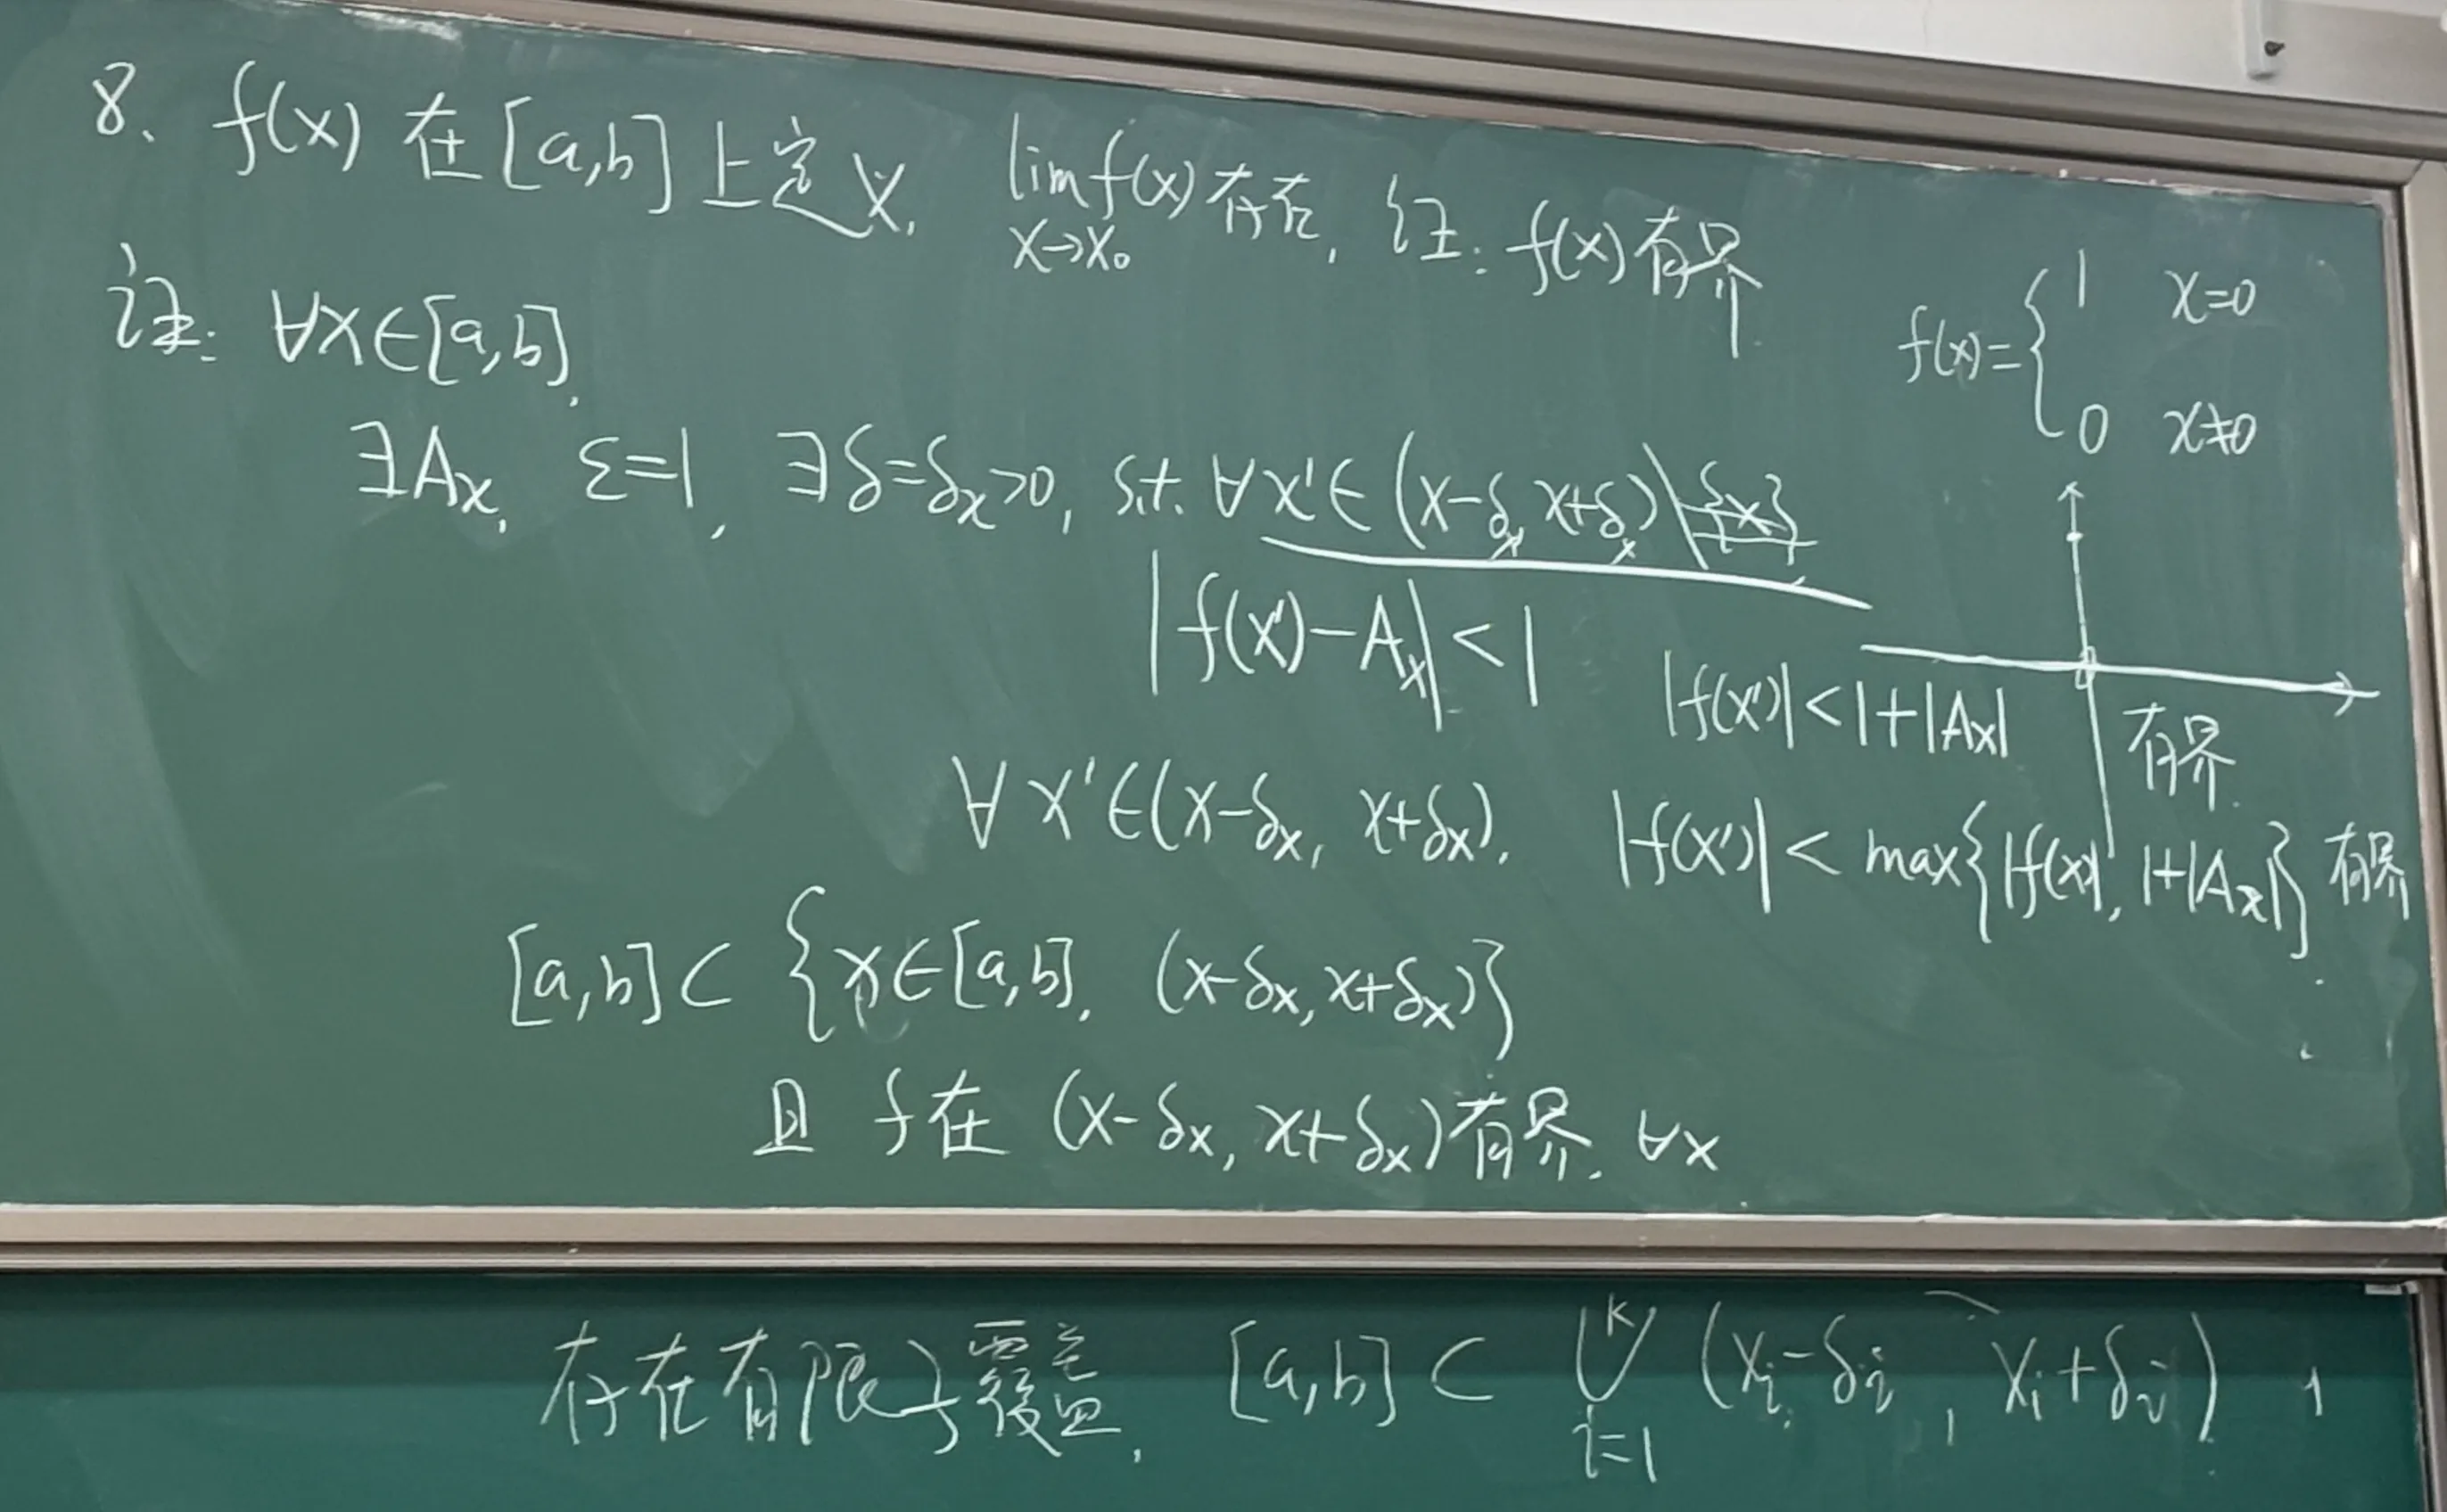 8、f(x) 在 [a,b] 上定义, lim f(x) 存在, 证: f(x) 有界
x→x₀
f(x)={ 1 x=0
0 x≠0
证: ∀x∈[a,b],
∃Aₓ, ε=1, ∃δ=δₓ>0, s.t. ∀x'∈(x-δₓ, x+δₓ)\{x}
|f(x')-Aₓ|<1
|f(x')|<1+|Aₓ|
有界.
∀x'∈(x-δₓ, x+δₓ), |f(x')|< max{|f(x)|, 1+|Aₓ|} 有界
[a,b]⊂ {x∈[a,b], (x-δₓ, x+δₓ)}
且 f在 (x-δₓ, x+δₓ)有界. ∀x
存在有限子覆盖, [a,b]⊂ ⋃ᵢ₌₁ᴷ (xᵢ-δᵢ, xᵢ+δᵢ),